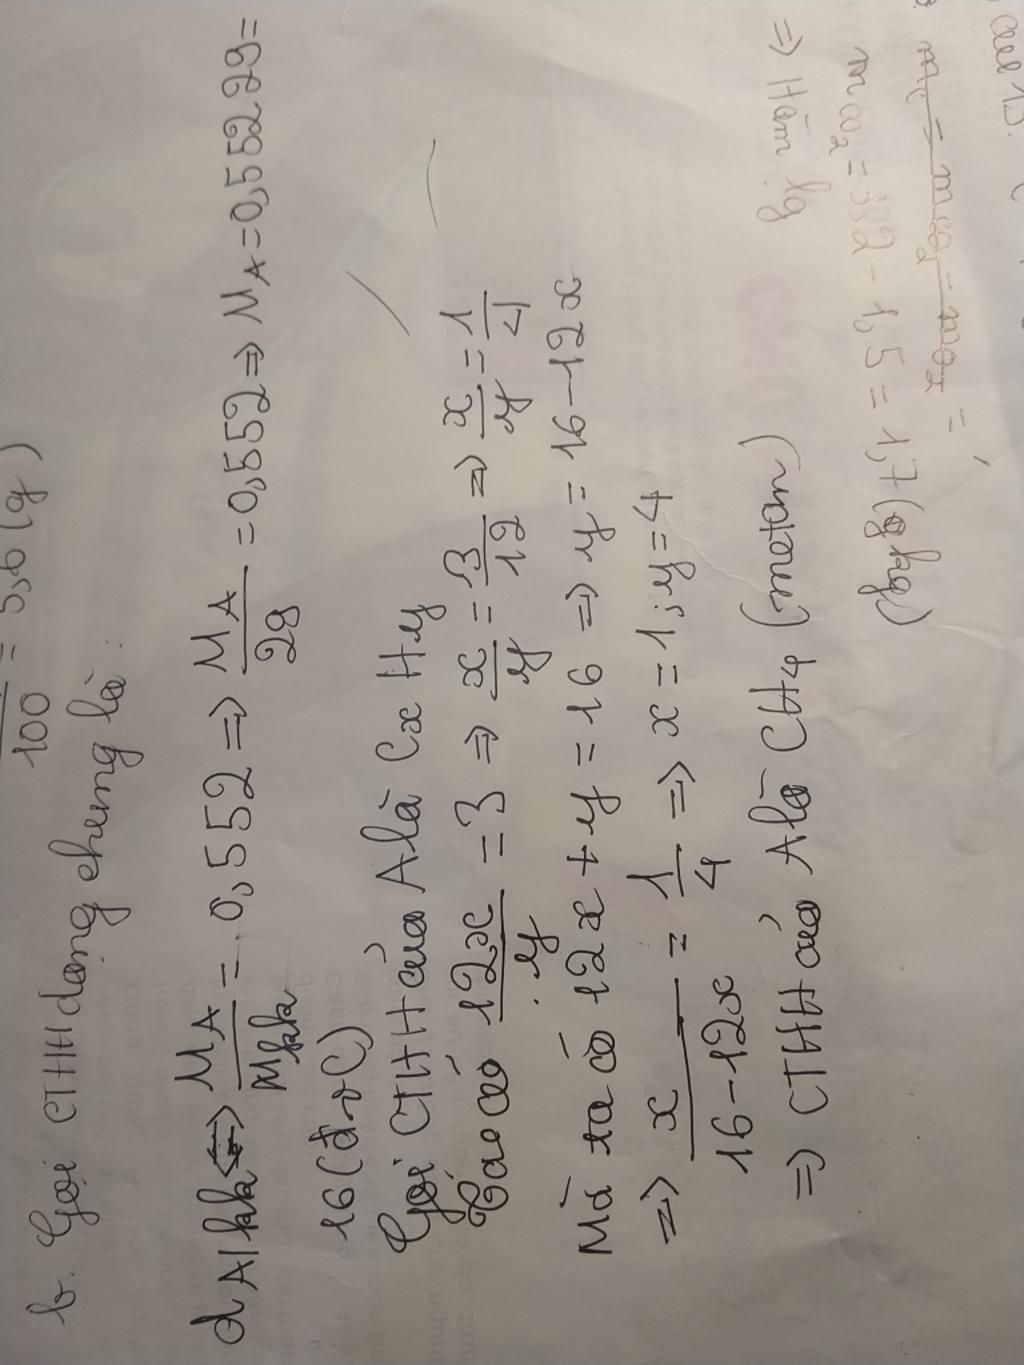 100 = 5,6 (g)
b. Gọi CTHH dạng chung là:
d A/kk ⇔ M_A / M_kk = 0,552 => M_A / 29 = 0,552 => M_A = 0,552.29 =
16 (đvC)
Gọi CTHH của A là CxHy
Ta có 12x / y = 3 => x / y = 3 / 12 => x / y = 1 / 4
Mà ta có 12x + y = 16 => y = 16 - 12x
=> x / 16 - 12x = 1 / 4 => x = 1; y = 4
=> CTHH của A là CH4 (metan)
=> Hàm lg
m co2 = 382 - 1,5 = 1,7 (g kg)
m = m co2 - m o2 =